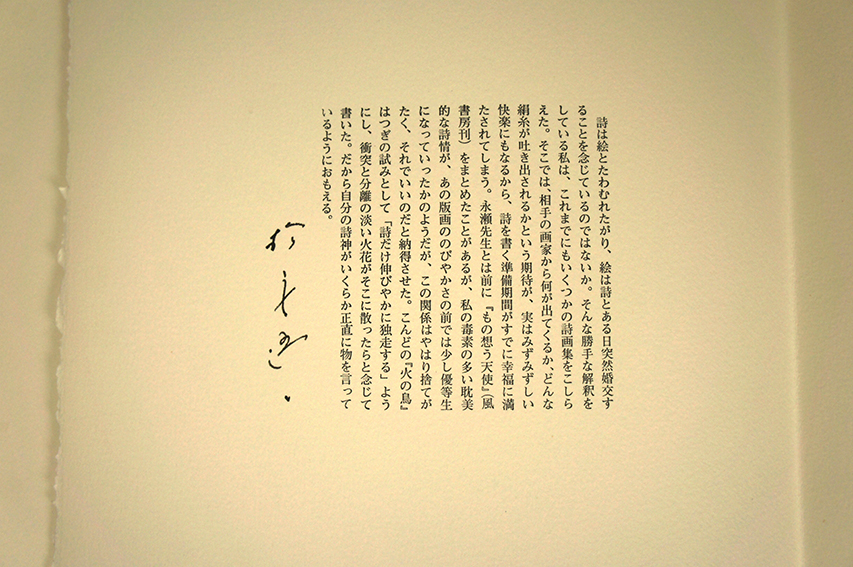 詩は絵とたわむれたがり、絵は詩とある日突然婚交す
ることを念じているのではないか。そんな勝手な解釈を
している私は、これまでにもいくつかの詩画集をこしら
えた。そこでは、相手の画家から何が出てくるか、どんな
絹糸が吐き出されるかという期待が、実はみずみずしい
快楽にもなるから、詩を書く準備期間がすでに幸福に満
たされてしまう。永瀬先生とは前に『もの想う天使』(風
書房刊)をまとめたことがあるが、私の毒素の多い耽美
的な詩情が、あの版画ののびやかさの前では少し優等生
になっていったかのようだが、この関係はやはり捨てが
たく、それでいいのだと納得させた。こんどの『火の鳥』
はつぎの試みとして「詩だけ伸びやかに独走する」よう
にし、衝突と分離の淡い火花がそこに散ったらと念じて
書いた。だから自分の詩神がいくらか正直に物を言って
いるようにおもえる。